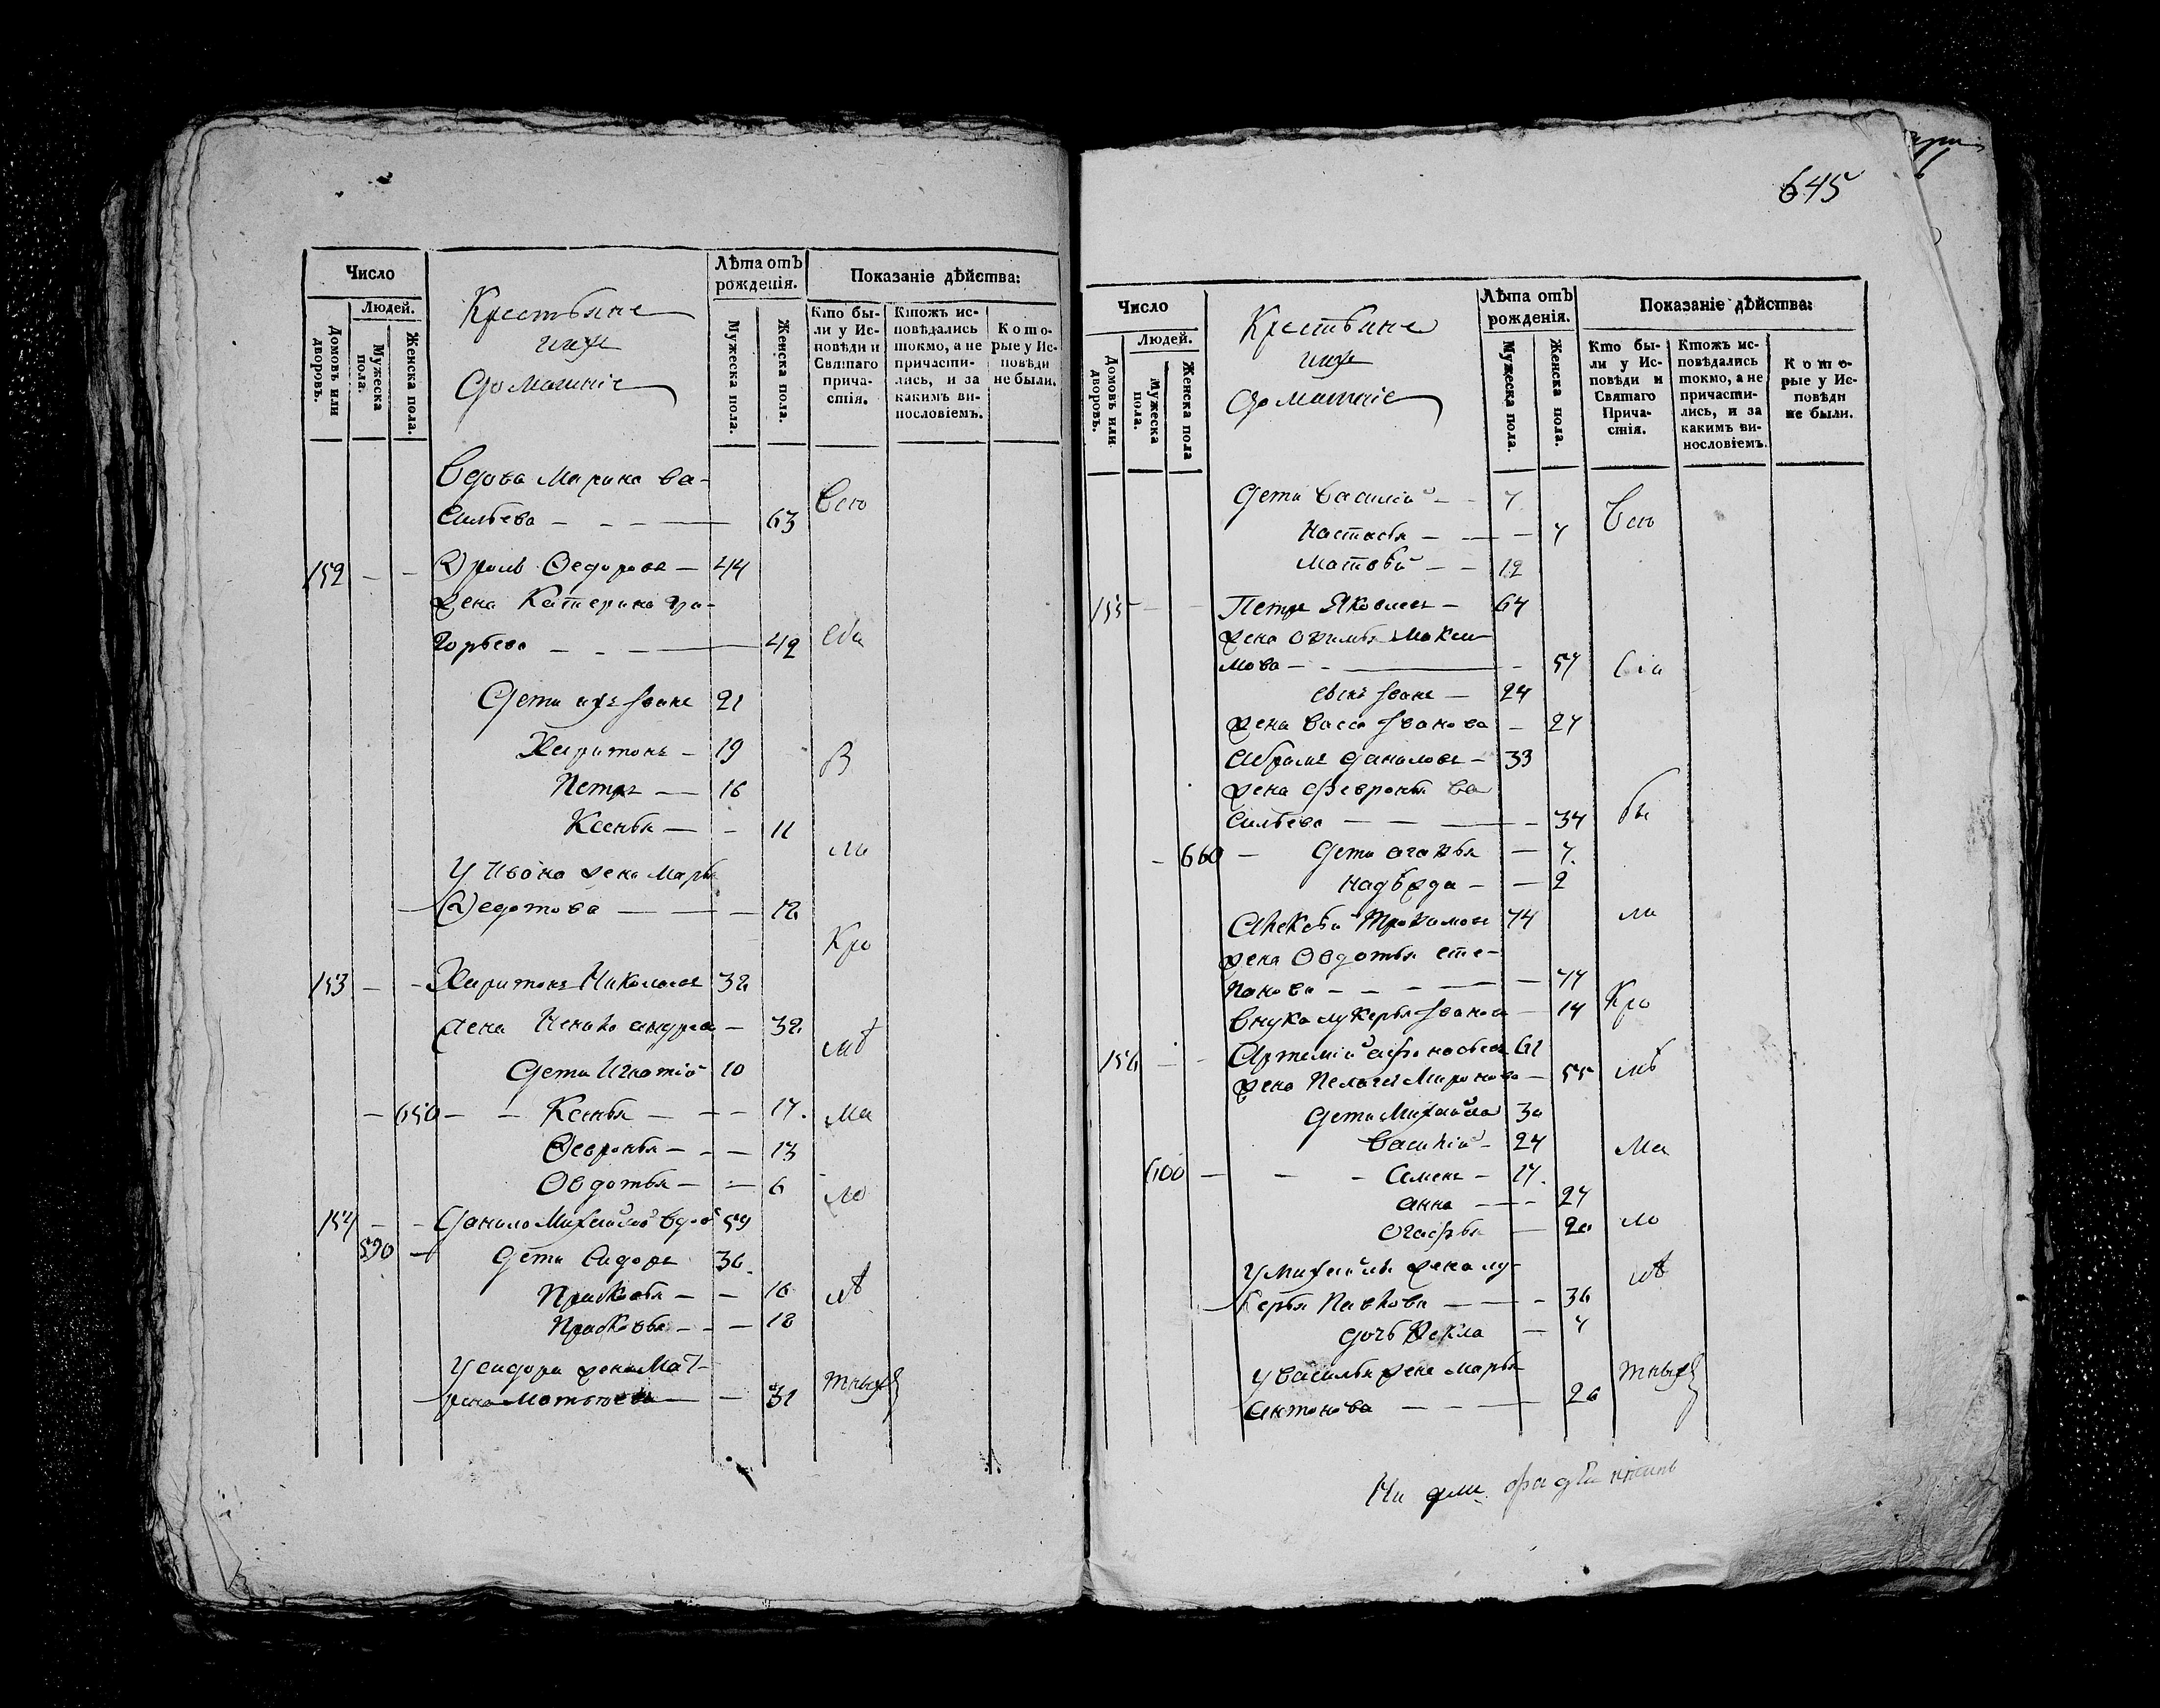 645
Число
Людей.
Домовъ или дворовъ.
Мужеска пола.
Женска пола.
Крестьяне
ихъ
Домашніе
Лѣта отъ рожденія.
Мужеска пола.
Женска пола.
Показаніе дѣйства:
Кто бы-
ли у Ис-
повѣди и
Святаго
прича-
стія.
Ктожъ ис-
повѣдались
токмо, а не
причасти-
лись, и за
какимъ ви-
нословіемъ.
Кото-
рые у Ис-
повѣди
не были.
Вдова Марина Ва-
сильева — 63 Всю
152 — — Ѳролъ Ѳедоровъ — 44
жена Катерина Гри-
горьева — 42
Дети ихъ Иванъ 21
Харитонъ — 19 В
Петръ — 16
Ксенья — 11
У Ивана жена Марья
Ѳедотова — 18
Кро
153 — — Харитонъ Николаевъ 32
жена — 32
мѣ
Дети Игнатій 10
— 650 — — Ксенья — 17.
Ма
Ѳевронья — 13
Овдотья — 6
ло
154 — — Данило Михайловъ вдовъ 59
590 — Дети Сидоръ 36.
Прасковья — 16
лѣ
Прасковья — 18
У Сидора жена Мат-
рена — 31
тныхъ
Число
Людей.
Домовъ или дворовъ.
Мужеска пола.
Женска пола
Крестьяне
ихъ
Домашніе
Лѣта отъ рожденія.
Мужеска пола.
Женска пола.
Показаніе дѣйства:
Кто бы-
ли у Ис-
повѣди и
Святаго
Прича-
стія.
Ктожъ ис-
повѣдались
токмо, а не
причасти-
лись, и за
какимъ ви-
нословіемъ.
Кото-
рые у Ис-
повѣди
не были.
Дети Василій — 7
Всю
Настасья — 7
Матвѣй — 12
155 — — Петръ Яковлевъ — 64
жена Офимья Макси-
мова — 57
сынъ Иванъ — 24
жена Васса Иванова — 27
Абрамъ Даниловъ — 33
жена Февронья Ва
сильева — 34 бы
— 660 — Дети Агафья — 7.
Надежда — 2
Алексѣй Трофимовъ 74
ли
жена Овдотья Сте-
панова — 77
Кро
внука Лукерья Иванова — 14
156 — — Артемій Афонасьевъ 61
жена Пелагея Миронова — 55 мѣ
Дети Михайла 30
Василій — 24
Ма
600 — — — Семенъ — 17.
Анна — 27
Огафья — 20
ло
У Михайлы жена Лу-
лѣ
керья Павлова — 36
дочь Ѳекла — 7
У Василья жена Марья
тныхъ
Антонова — 26